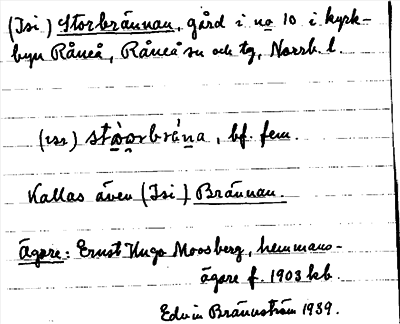 (Isi) Storbrännan, gård i no 10 i kyrk-
byn Råneå, Råneå sn och tg, Norrb. l.
bf. fem.
Kallas även (Isi) Brännan.
Ägare: Ernst Hugo Moosberg, hemmans-
ägare f. 1903 kb.
Edvin Brännström 1939.